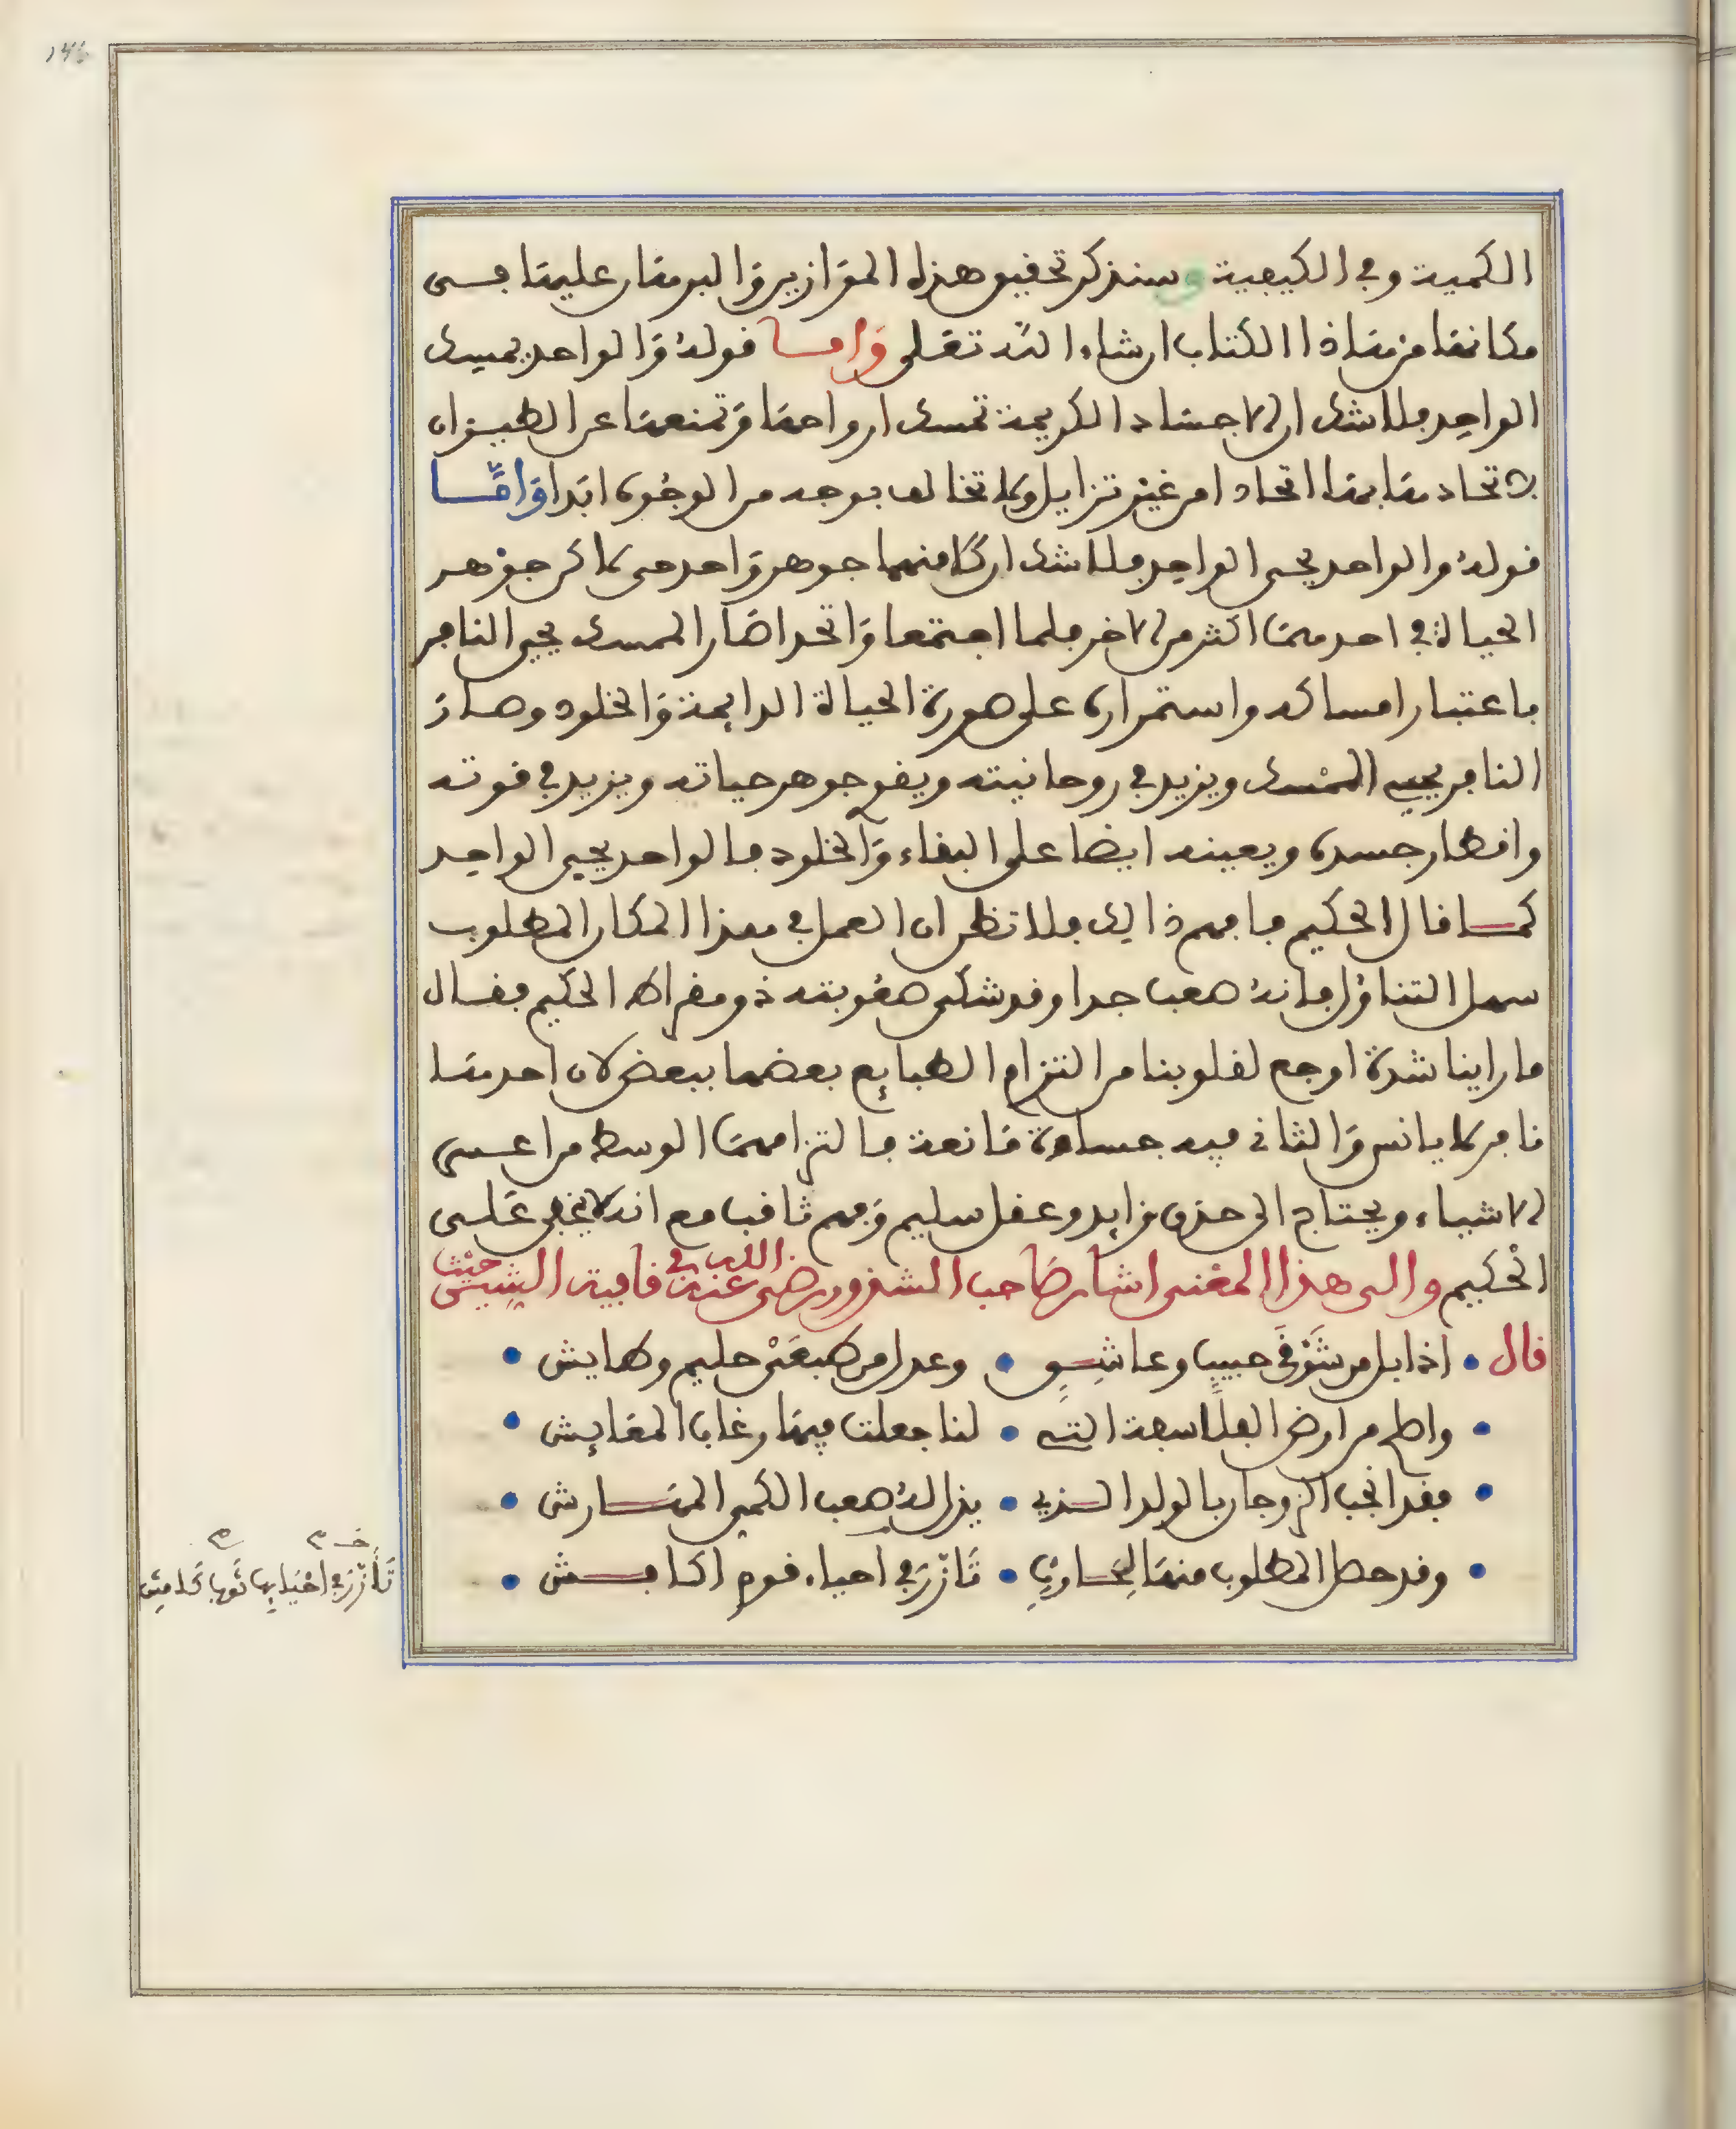 الكمية وفي الكيفية وسنذكر تحقيق هذه الموازين والبرهان عليها في
مكانها من هذا الكتاب ان شاء الله تعلى واما قوله والواحد يمسك
الواحد فلا شك ان الاجساد الكريمة تمسك ارواحها وتمنعها عن الطيران
لاتحادها بها اتحادا من غير تزايل ولا تخالف بوجه من الوجوه ابدا واما
قوله والواحد يحيى الواحد فلا شك ان كلا منهما جوهر واحد حي لاكن جوهر
الحياة في احدهما اكثر من الاخر فلما اجتمعا واتحدا صار الممسك يحيى النافر
باعتبار امساكه واستمراره على صورة الحياة الدايمة والخلود وصار
النافر يحيى الممسك ويزيد في روحانيته ويقوي جوهر حياته ويزيد في قوته
واقطار جسده ويعينه ايضا على البقاء والخلود فالواحد يحيى الواحد
كما قال الحكيم فافهم ذالك فلا تظن ان العمل في هذا المكان المطلوب
سهل التناول فانه صعب جدا وقد شكى صعوبته ذومقراط الحكيم فقال
ما راينا شدة اوجع لقلوبنا من التزام الطبايع بعضها ببعض لان احدها
نافر لا يانس والثاني فيه حساوة مانعة فالتزامهما الوسط من اعسر
الاشياء ويحتاج الى حذق زايد وعقل سليم وفهم ثاقب مع انه لا يخفى على
الحكيم والى هذا المعنى اشار صاحب الشذور رضي الله عنه في قافية الشين حيث
قال • اذا بل من شوقي حبيب وعاشق • وعدل من طبعي حليم وطايش •
• واطلع من ارض الفلاسفة التي • لنا جعلت فيها رغاب المعايش •
• فقد انجب الزوجان بالولد الذي • يذل له صعب الكمي المهارش •
• وقد حصل المطلوب منها لحاذق • تازر في احياء قوم اكامش •
خـ م م
تأزر في احيايها ثوبا كامش